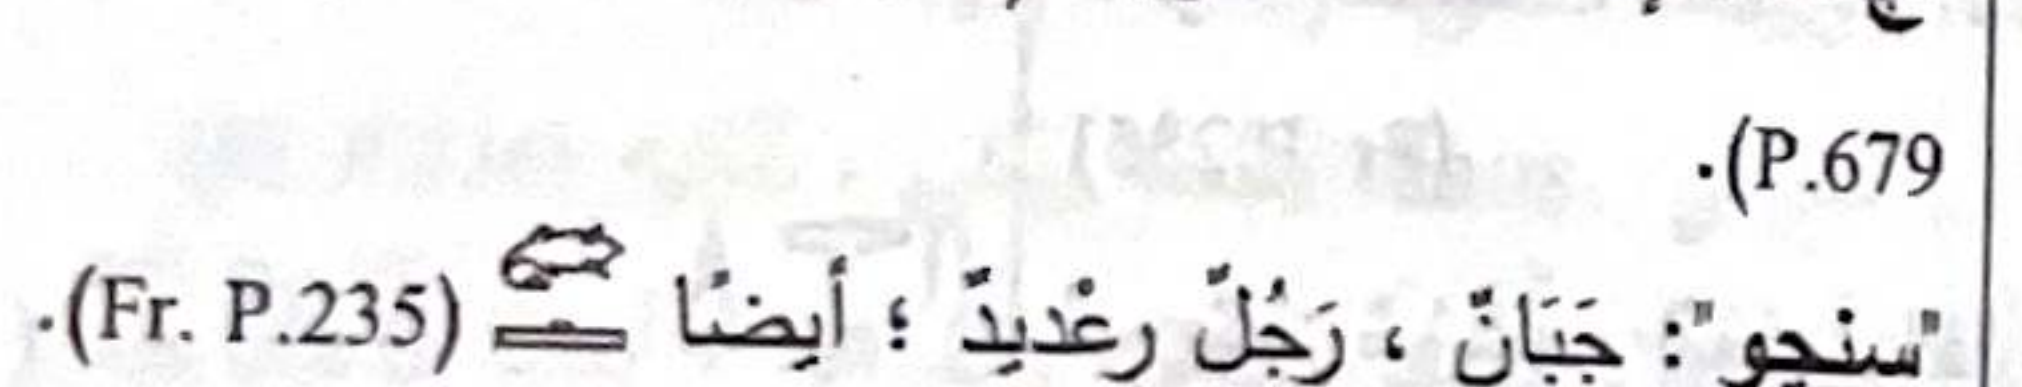 .(P.679
"سنجو": جَبَانٌ ، رَجُلٌ رعْديدٌ ؛ أيضًا (Fr. P.235).